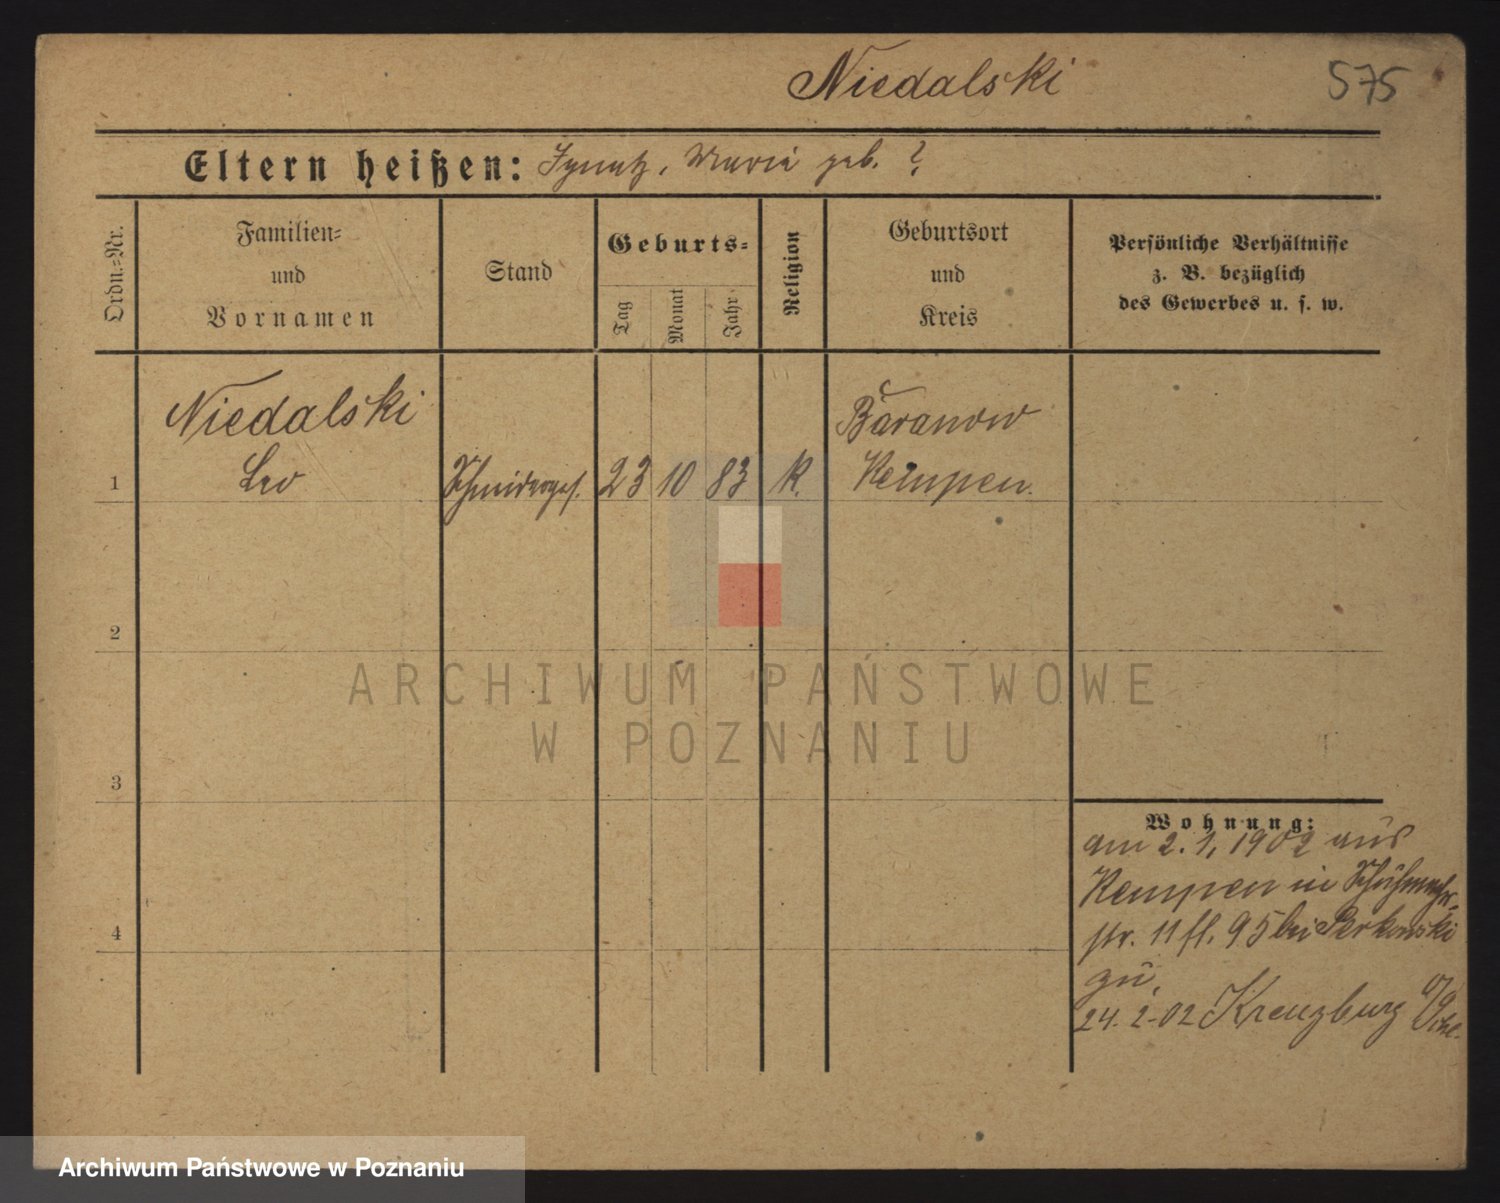 Niedalski
575
Eltern heißen: Ignatz, Maria geb. ?
Ordn.-Nr.
Familien-
und
Vornamen
Stand
Geburts-
Tag
Monat
Jahr
Religion
Geburtsort
und
Kreis
Persönliche Verhältnisse
z. B. bezüglich
des Gewerbes u. s. w.
Niedalski
Leo
1
Schneiderges.
23
10
83
K.
Baranow
Kempen.
2
3
4
ARCHIWUM PAŃSTWOWE
W POZNANIU
Wohnung:
am 2.1.1902 aus
Kempen in
str. 11 fl. 95 bei
zu.
24.2-02 Kreuzburg
Archiwum Państwowe w Poznaniu